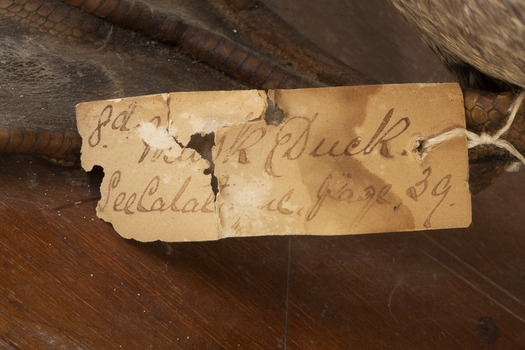 8.d Musk Duck.
See Catal e, Page, 39.